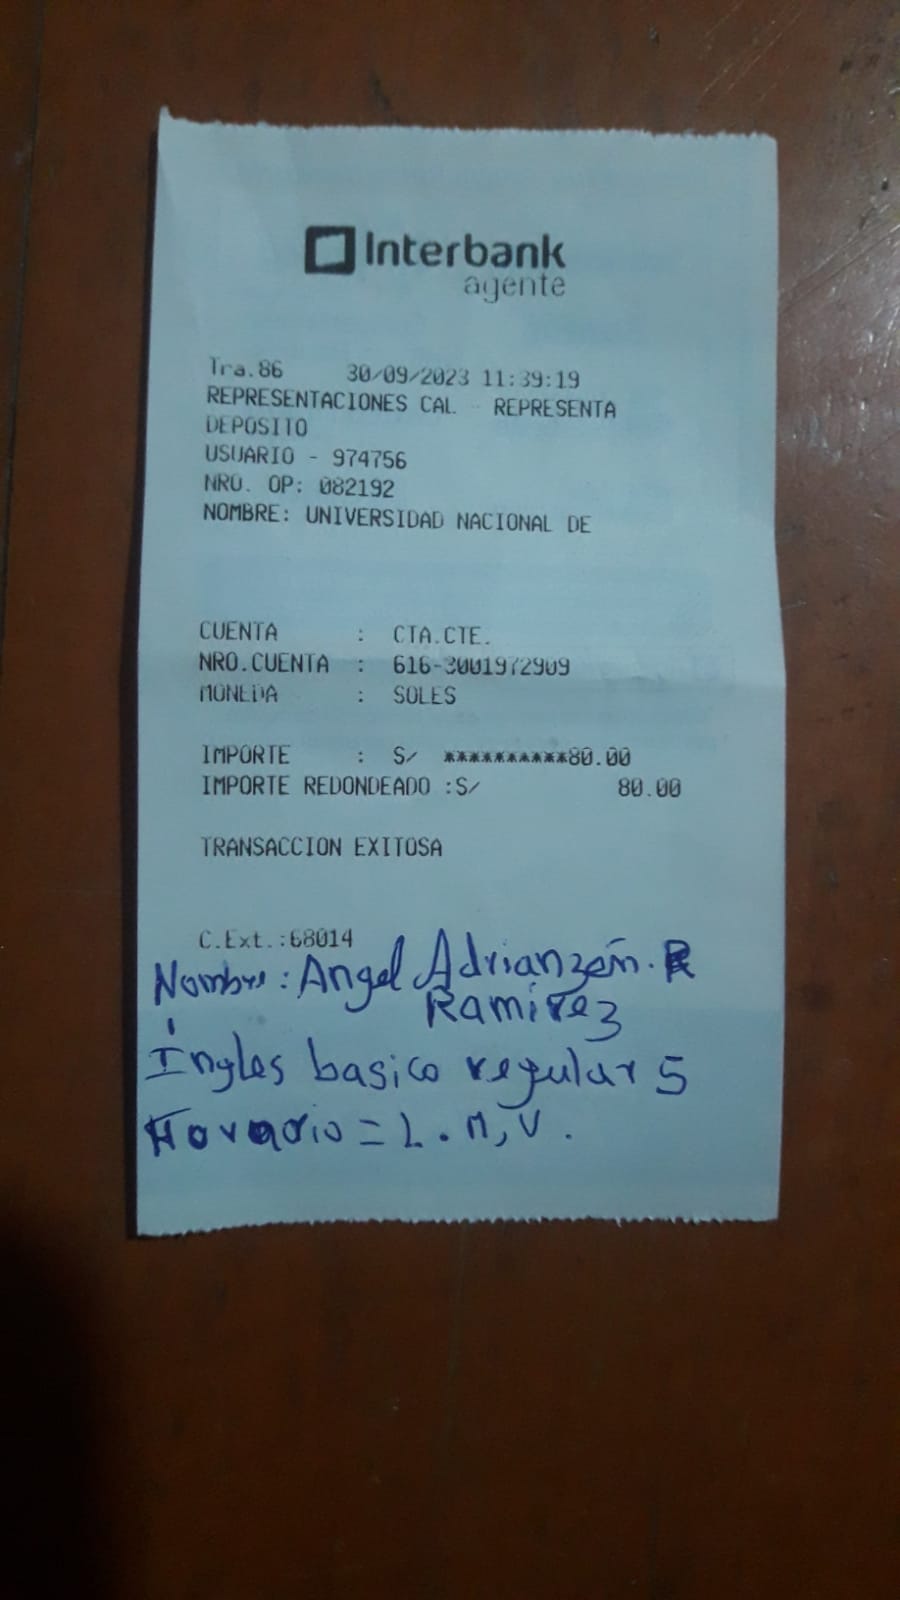 Interbank
agente
Tra.86 30/09/2023 11:39:19
REPRESENTACIONES CAL - REPRESENTA
DEPOSITO
USUARIO - 974756
NRO. OP: 082192
NOMBRE: UNIVERSIDAD NACIONAL DE
CUENTA : CTA.CTE.
NRO.CUENTA : 616-3001972909
MONEDA : SOLES
IMPORTE : S/ **********80.00
IMPORTE REDONDEADO :S/ 80.00
TRANSACCION EXITOSA
C.Ext.:68014
Nombre: Angel Adrianzén. R
Ramírez
Ingles basico regular 5
Horario = L. M, V.